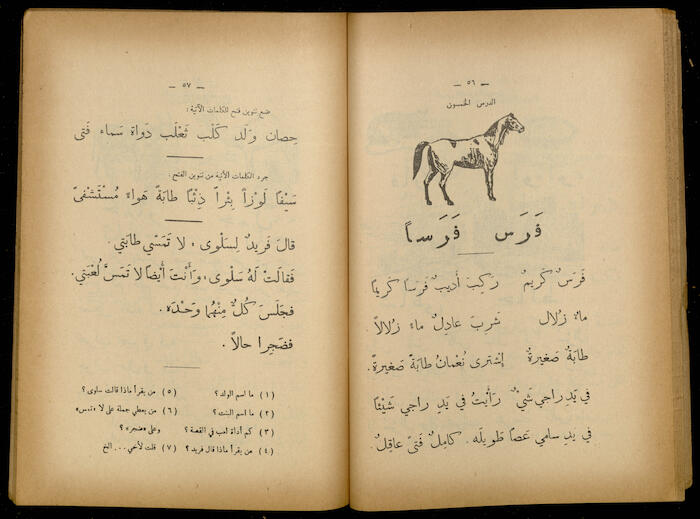 — ٥٦ —
الدرس الخمسون
فَرَس فَرَساً
فَرَسٌ كَريمٌ رَكِبَ أَديبٌ فَرَسًا كَريمًا
ماءٌ زُلالٌ شَرِبَ عادِلٌ ماءً زُلالاً.
طابَةٌ صَغيرَةٌ إشْترى نُعْمانُ طابَةً صَغيرَةً.
في يَدِ راجي شَيْءٌ رَأَيْتُ في يَدِ راجي شَيْئًا
في يَدِ سامي عَصًا طَويلَه. كامِلٌ فَتىً عاقِلٌ.
— ٥٧ —
ضع تنوين فتح للكلمات الآتية :
حِصان وَلَد كَلْب ثَعْلَب دَواة سَماء فَتى
جرد الكلمات الآتية من تنوين الفتح :
سَيْفًا لَوْزاً بِئْراً ذِئْبًا طابَةً هَواءً مُسْتَشْفىً
قالَ فَريدٌ لِسَلْوى، لا تَمَسِّي طابَتي.
فَقالَتْ لَهُ سَلْوى، وَأَنْتَ أَيْضاً لا تَمَسَّ لُعْبَتي.
فَجَلَسَ كُلٌّ مِنْهُما وَحْدَهُ.
فَضَجِرا حالاً.
(١) ما اسم الولد ؟ (٥) من يقرأ ماذا قالت سلوى ؟
(٢) ما اسم البنت ؟ (٦) من يعطي جملة على لا «تمس»
(٣) كم أداة لعب في القصة ؟ وعلى «ضجر» ؟
(٤) من يقرأ ماذا قال فريد ؟ (٧) قلت لأخي ... الخ